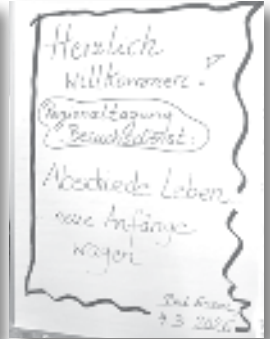 Herzlich
willkommen!
Regionaltagung
Besuchsdienst
Abschiede Leben
neue Anfänge
wagen